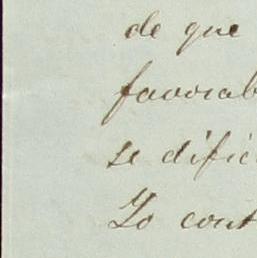 de que
favorab
se dific
Lo cont